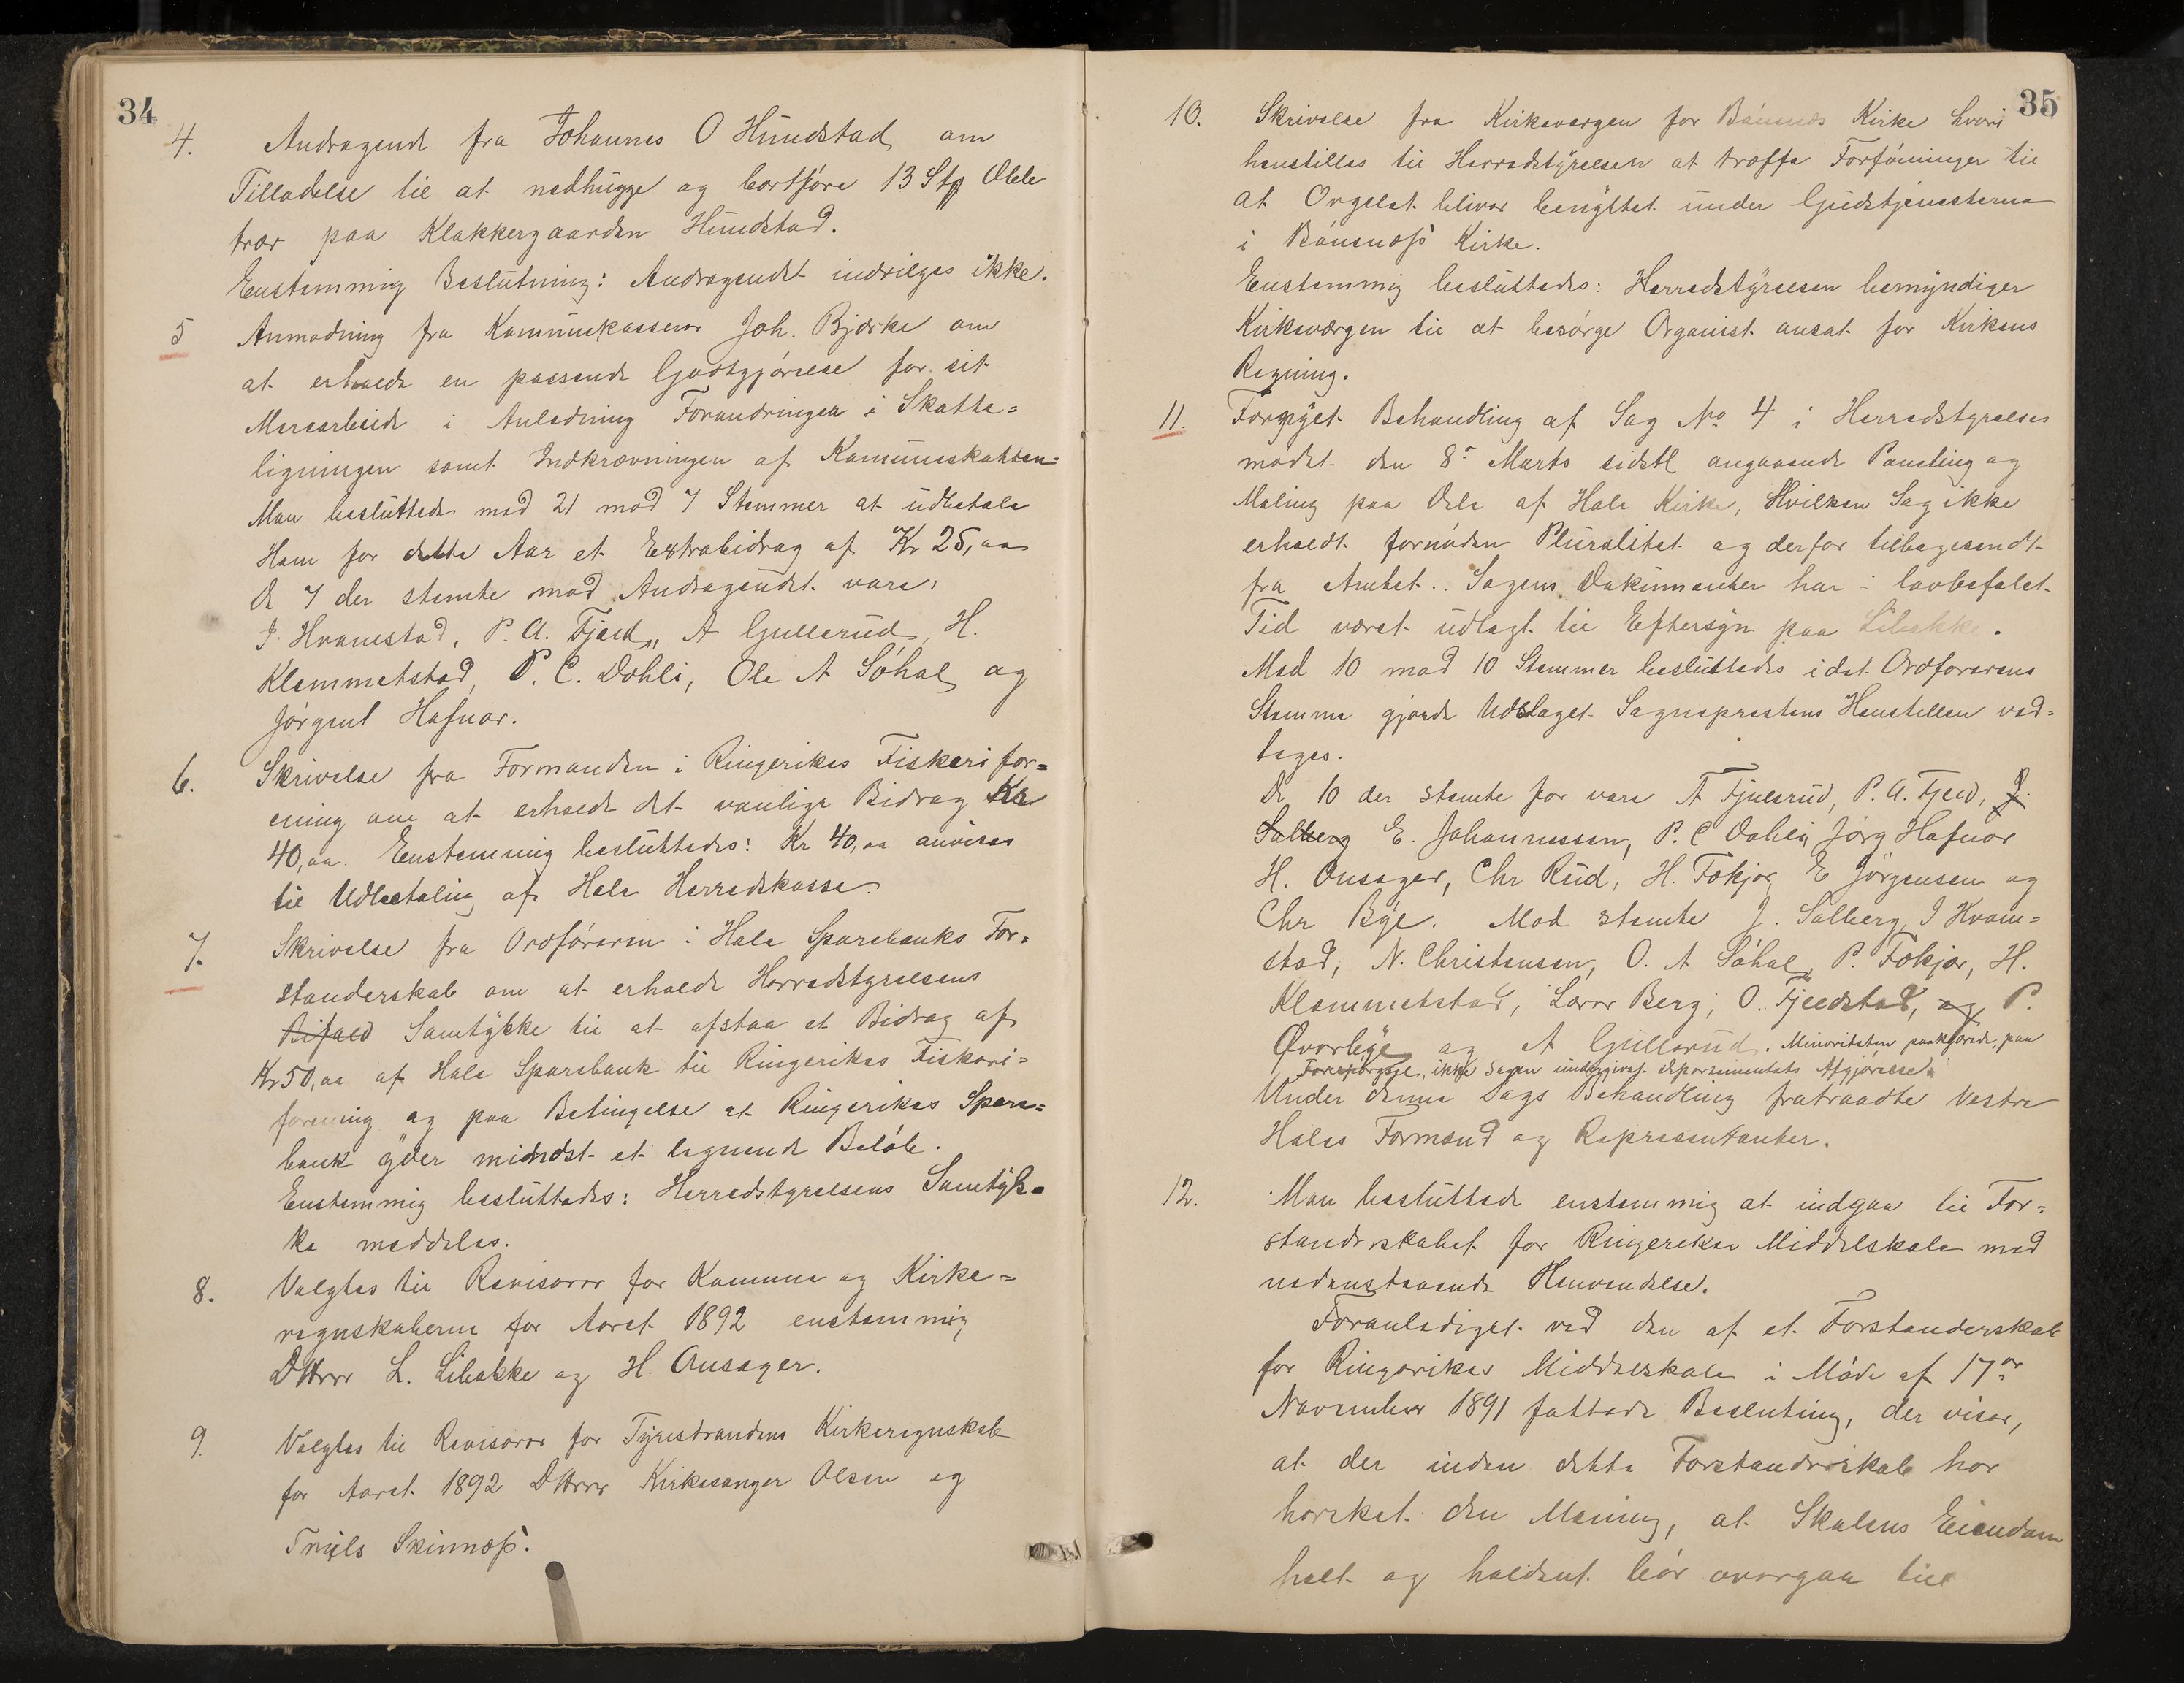 34
4. Andragende fra Johannes O Hundstad om
Tilladelse til at nedhugge og bortføre 13 Stk Older
trær paa Klokkergaarden Hundstad.
Enstemmig Beslutning: Andragendet indvilges ikke.
5 Anmodning fra Kommunekasserer Joh. Bjørke om
at erholde en passende Godtgjørelse for sit
Merearbeide i Anledning Forandringen i Skatte=
ligningen samt Indkrævningen af Kommuneskatten=
Man besluttede med 21 mod 7 Stemmer at udbetale
Ham for dette Aar et Extrabidrag af Kr 25,00
De 7 der stemte mod Andragendet vare,
I. Hvamstad, P. A. Fjeld, A Gullerud, H.
Klemmetstad, P. C. Dahli, Ole A Søhol og
Jørgent Hafnor.
6. Skrivelse fra Formanden i Ringerikes Fiskerifor=
ening om at erholde det vanlige Bidrag Kr
40,00. Enstemmig besluttedes: Kr 40,00 anvises
til Udbetaling af Hole Herredskasse.
7. Skrivelse fra Ordføreren i Hole Sparebanks For=
standerskab om at erholde Herredstyrelsens
Bifald Samtykke til at afstaa et Bidrag af
Kr 50,00 af Hole Sparebank til Ringerikes Fiskeri=
forening og paa Betingelse at Ringerikes Spare=
bank yder mindst et lignende Beløb.
Enstemmig besluttedes: Herredstyrelsens Samtyk=
ke meddeles.
8. Valgtes til Revisorer for Kommune og Kirke=
regnskaberne for Aaret 1892 enstemmig
DHrrr L. Libakke og H. Onsager.
9. Valgtes til Revisorer for Tyristrandens Kirkeregnskab
for Aaret 1892 DHrrr Kirkesanger Olsen og
Truls Skinnæss.
35
10. Skrivelse fra Kirkevergen for Bønsnæs Kirke hvori
henstilles til Herredstyrelsen at træffe Forføininger til
at Orgelet bliver benyttet under Gudstjenesterne
i Bønsnæss Kirke.
Enstemmig besluttedes: Herredstyrelsen bemyndiger
Kirkeværgen til at besørge Organist ansat for Kirkens
Regning.
11. Fornyet Behandling af Sag No 4 i Herredstyrelses
mødet den 8de Marts sidstl angaaende Paneling og
Maling paa Dele af Hole Kirke, Hvilken Sag ikke
erholdt fornøden Pluralitet og derfor tilbagesendt
fra Amtet. Sagens Dokumenter har i lovbefalet
Tid været udlagt til Eftersyn paa Libakke.
Med 10 mod 10 Stemmer besluttedes idet Ordførerens
Stemme gjorde Udslaget Sognepræstens Henstillen ved=
tages.
De 10 der stemte for vare A Fjulsrud, P. A. Fjeld, J.
Solberg E. Johannessen, P. C Dahli, Jørg Hafnor
H. Onsager, Chr Rud, H. Fokjær, E Jørgensen og
Chr Bye. Mod stemte J. Solberg, I Hvam=
stad, N. Christensen, O. A Søhol, P. Fokjær, H.
Klemmetstad, Lærer Berg, O. Fjeldstad, og P.
Øverbye og A Gullerud. Minoriteten paakjærede, paa
Forespørgsel, ikke Sagen undergivet departementets Afgjørelse.
Under denne Sags Behandling fratraadte Vestre
Holes Formænd og Repræsentanter.
12. Man besluttede enstemmig at indgaa til For=
standerskabet for Ringerikes Middelskole med
nedenstaaende Henvendelse.
Foranlediget ved den af et Forstanderskab
for Ringerikes Middelskole i Møde af 17de
November 1891 fattede Beslutning, der viser,
at der inden dette Forstanderskab har
hersket den Mening, at Skolens Eiendom
helt og holdent bør overgaa til